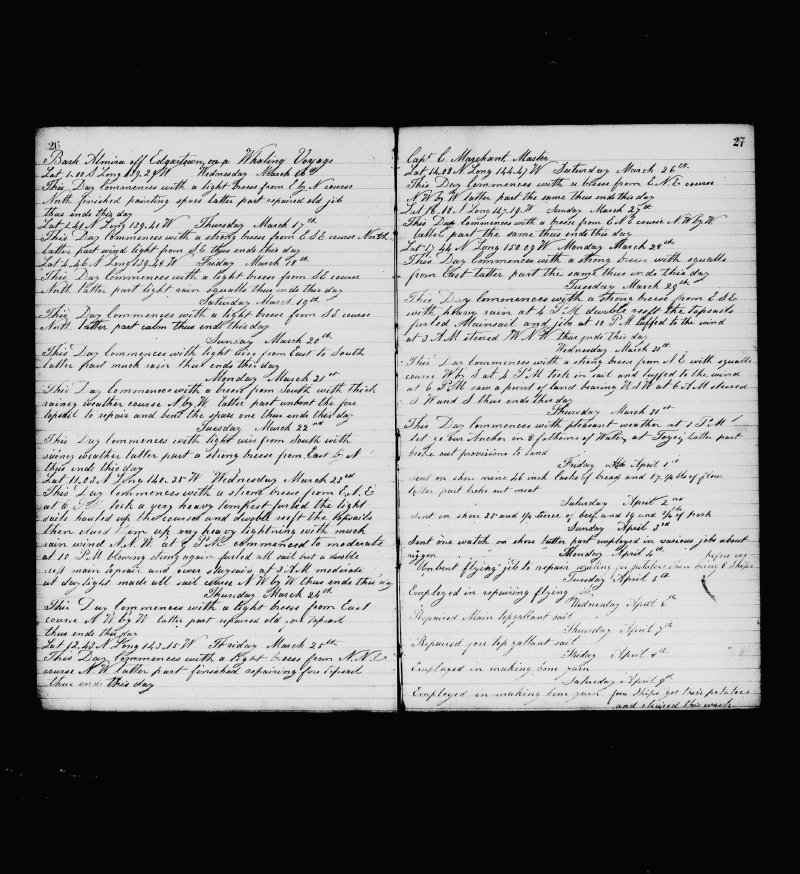 26
Bark Almira off Edgartown, on a Whaling Voyage
Lat 1.00 S Long 139.28 W Wednesday March 16th
This Day Commences with a light breese from E by N course
North finished painting spars latter part repaired old jib
thus ends this day
Lat 1.41 N Long 139.41 W Thursday March 17th
This Day Commences with a strong breese from E S E course North
latter part wind light from SE thus ends this day
Lat 4.46 N Long 139.48 W Friday March 18th
This Day Commences with a light breese from SE course
North latter part light rain squalls thus ends this day
Saturday March 19th
This Day Commences with a light breese from SE course
North latter part calm thus ends this day
Sunday March 20th
This Day Commences with light airs from East to South
latter part much rain thus ends this day
Monday March 21st
This Day Commences with a breese from South with thick
rainey weather course N by W latter part unbent the fore
topsail to repair and bent the spare one thus ends this day
Tuesday March 22nd
This Day commences with light airs from South with
rainy weather latter part a strong breese from East by N
thus ends this day
Lat 11.03 N Long 140.35 W Wednesday March 23rd
This Day Commences with a strong breese from E.N.E
at 6 P.M. took a very heavy tempest furled the light
sails hauled up the courses and double reeft the topsails
then clued them up very heavy lightning with much
rain wind N.N.W. at 7 P.M commenced to moderate
at 10 P M blowing strong again furled all sail but a double
reeft main topsail and over staysails at 3 A M moderate
at day light made all sail course N W by W thus ends this day
Thursday March 24th
This Day Commences with a light breese from East
course N W by W latter part repaired old fore topsail
thus ends this day
Lat 12.43 N Long 143.15 W Friday March 25th
This Day Commences with a light breese from N.N.E
course N.W. latter part finished repairing fore topsail
thus ends this day
27
Capt C. Marchant, Master
Lat 14.28 N Long 144.47 W Saturday March 26th
This Day Commences with a breese from E.N.E course
N.W by W latter part the same thus ends this day
Lat 16.18 N Long 147.19 W Sunday March 27th
This Day Commences with a breese from E N E course N W by W
latter part the same thus ends this day
Lat 17.44 N Long 150.09 W Monday March 28th
This Day Commences with a strong breese with squalls
from East latter part the same thus ends this day
Tuesday March 29th
This Day Commences with a strong breese from E S E
with heavy rain at 4 P M double reeft the topsails
furled Mainsail and jib at 10 P M luffed to the wind
at 3 A M steered W N W thus ends this day
Wednesday March 30th
This Day Commences with a strong breese from N E with squalls
course W by S at 5 P M took in sail and luffed to the wind
at 6 P.M. saw a point of land bearing W S W at 6 A M steered
S W and S thus ends this day
Thursday March 31st
This Day Commences with pleasant weather at 1 P M
let go our Anchor in 8 fathoms of Water, at latter part
broke out provisions to land
Friday April 1st
sent on shore nine 46 inch Casks of bread and 17 of flour
latter part broke out meat
Saturday April 2nd
Sent on shore 35 and 1/2 tierce of beef, and 19 and of pork
Sunday April 3rd
Sent one watch on shore latter part employed in various jobs about
riggen
Monday April 4th before us
Unbent flying jib to repair waiting for potatoes there being 8 Ships
Tuesday April 5th
Employed in repairing flying jib
Wednesday April 6th
Repaired Main topgallant sail
Thursday April 7th
Repaired fore top gallant sail
Friday April 8th
Employed in making Cone yarn
Saturday April 9th
Employed in making Cone yarn four Ships got their potatoes
and cleared this week